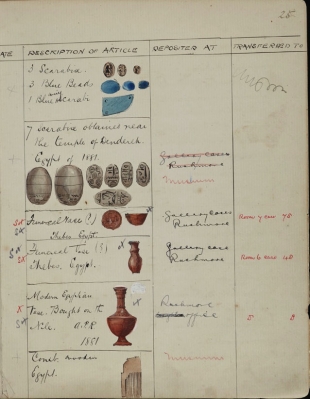 25
ATE DESCRIPTION OF ARTICLE DEPOSITED AT TRANSFERRED TO
3 Scarabia.
3 Blue Beads
1 Blue Scarab
7 scarabia obtained near
the temple of Denderah
Egypt of 1881.
Gallery Cases
Rushmore
Museum
Funereal Vase (?)
Thebes. Egypt.
Gallery Cases
Rushmore
Room 7 case 75
Funereal Vase (?)
Thebes. Egypt.
Gallery case
Rushmore
Modern Egyptian
Vase. Bought on the
Nile. A.P.R
1881
Rushmore
office
wooden
Egypt.
Museum